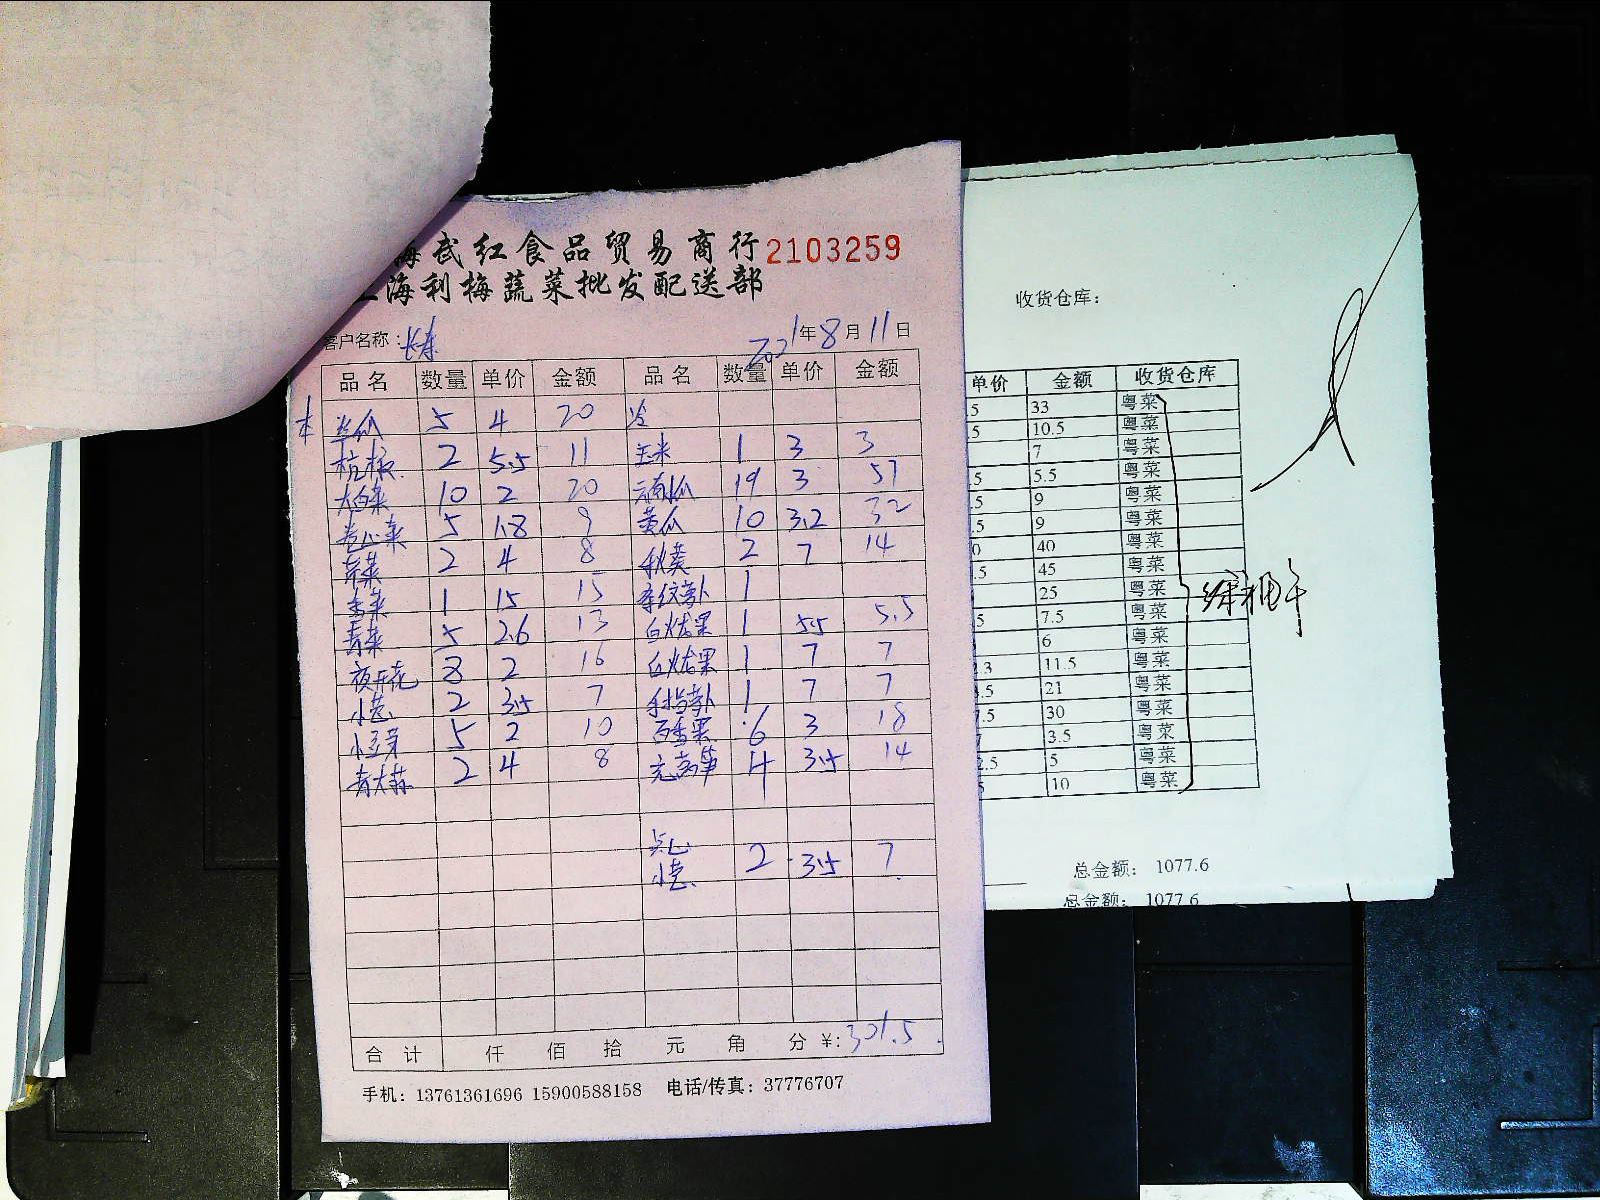 海武红食品贸易商行 2103259
上海利梅蔬菜批发配送部
客户名称: 长寿 2021年8月11日
品名 数量 单价 金额 品名 数量 单价 金额
本 5 4 20 冷
杭椒 2 5.5 11 玉米 1 3 3
大白菜 10 2 20 南瓜 19 3 57
卷心菜 5 1.8 9 黄瓜 10 3.2 32
芹菜 2 4 8 秋葵 2 7 14
香菜 1 15 15 萝卜 1
青菜 5 2.6 13 白火龙果 1 5.5 5.5
夜开花 8 2 16 白火龙果 1 7 7
小葱 2 3.5 7 手指萝卜 1 7 7
小豆芽 5 2 10 百香果 6 3 18
青大蒜 2 4 8 莴笋 4 3.5 14
点心
小葱 2 3.5 7
合计 仟 佰 拾 元 角 分 ¥: 301.5
手机: 13761361696 15900588158 电话/传真: 37776707
收货仓库:
单价 金额 收货仓库
.5 33 粤菜
.5 10.5 粤菜
7 粤菜
.5 5.5 粤菜
.5 9 粤菜
.5 9 粤菜
0 40 粤菜
.5 45 粤菜
25 粤菜
5 7.5 粤菜
6 粤菜
2.3 11.5 粤菜
3.5 21 粤菜
7.5 30 粤菜
7 3.5 粤菜
2.5 5 粤菜
5 10 粤菜
总金额: 1077.6
总金额: 1077.6